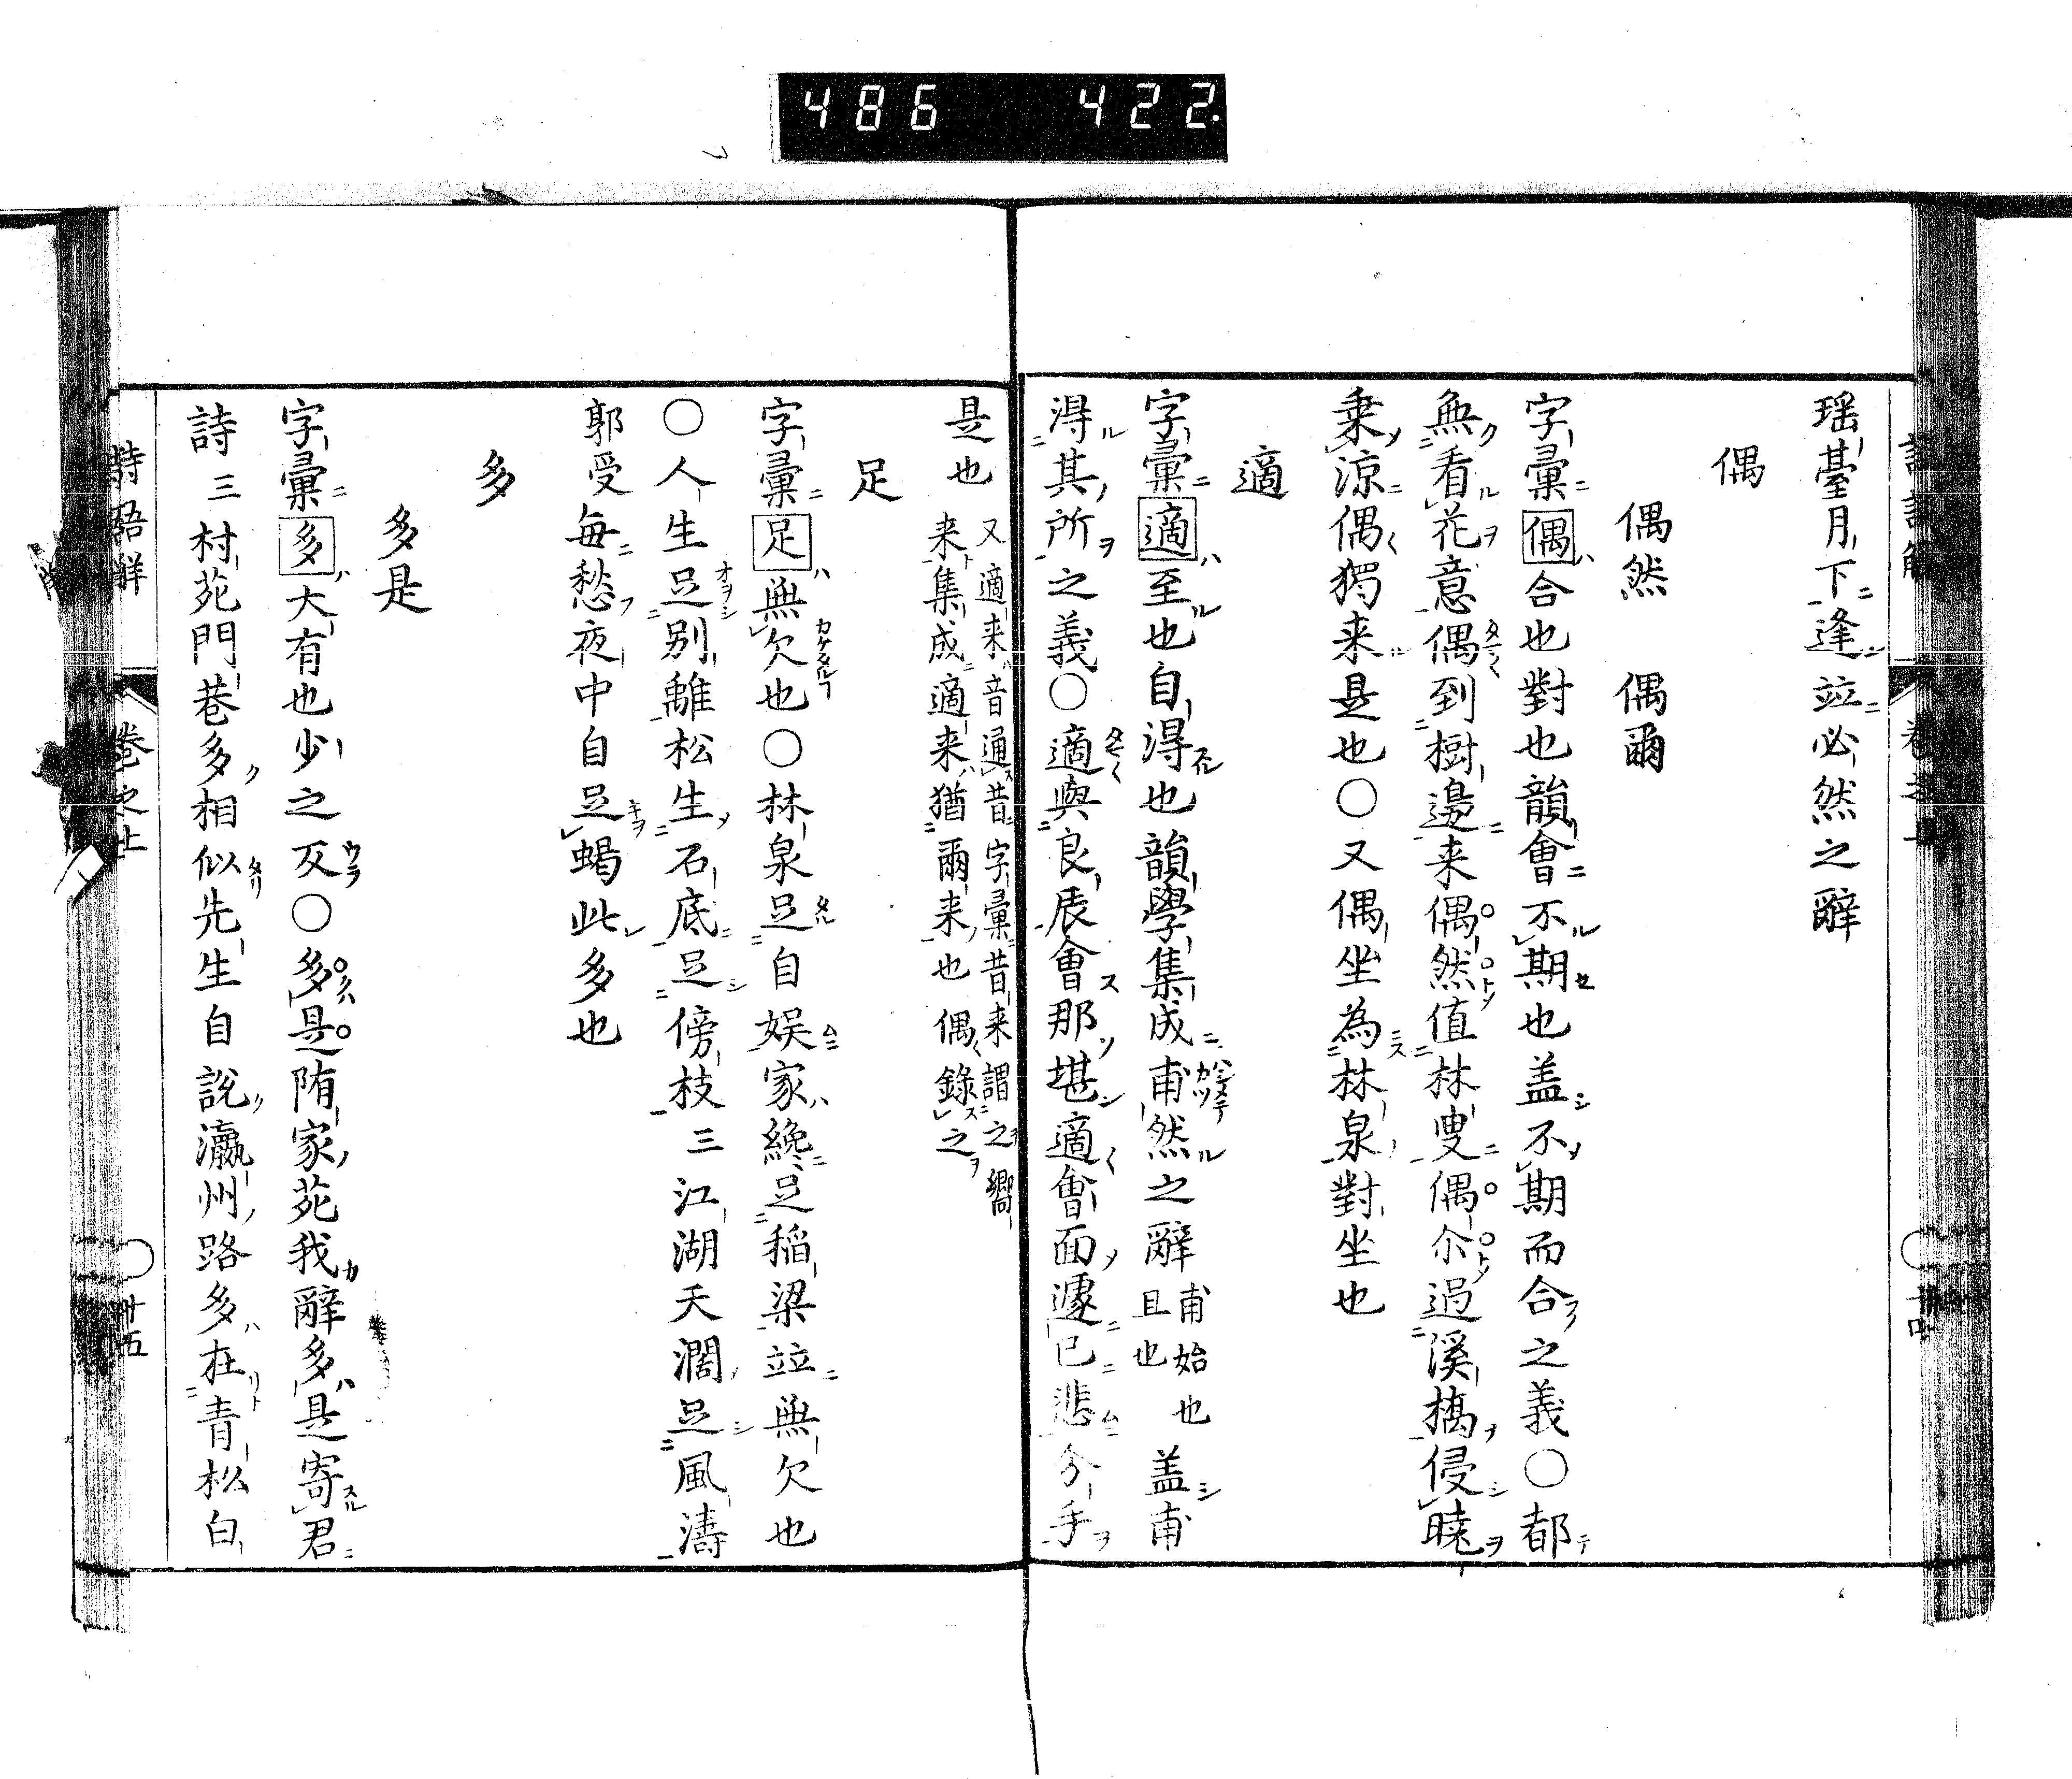 486 422.
瑶臺月下逢竝必然之辭
偶
偶然 偶爾
字彙偶合也對也韻會不期也盖不期而合之義〇都
無看花意偶到樹邊来偶然值林叟偶尒過溪橋侵曉
乗涼偶〱獨来是也〇又偶坐為林泉對坐也
適
字彙適至也自得也韻學集成甫然之辭甫始也且也盖甫
得其所之義〇適與良辰會那堪適〱會面遽已悲分手
是也又適来音通昔字彙昔来謂之嚮
来集成適来猶爾来也偶〱錄之
足
字彙足無欠也〇林泉足自娯家纔足稲梁竝無欠也
〇人生足別離松生石底足傍枝三江湖天濶足風濤
郭受每愁夜中自足蝎此多也
多
多是
字彙多大有也少之反〇多是陏家苑我辭多是寄君
詩三村苑門巷多相似先生自說瀛州路多在青松白
詩語解 卷之上 卅五